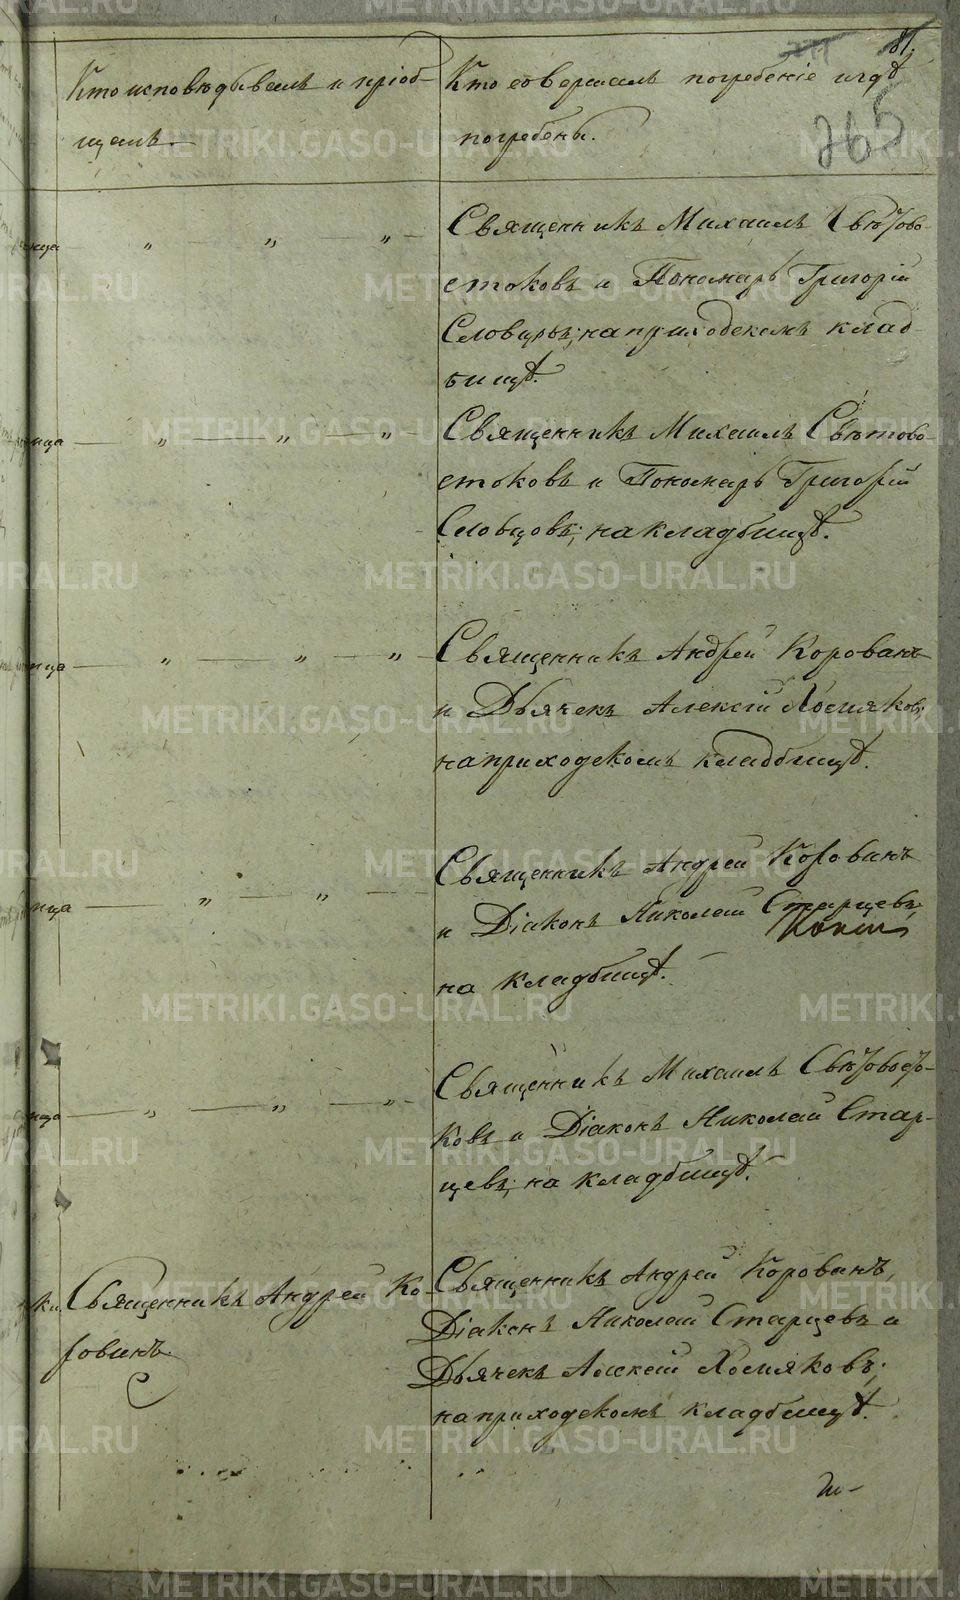 81.
265
Кто исповѣдывалъ и пріоб-
щалъ.
Кто совершалъ погребеніе и гдѣ
погребены.
Священникъ Михаилъ Свѣтово-
стоковъ и Пономарь Григорій
Словцовъ; на приходскомъ клад-
бищѣ.
Священникъ Михаилъ Свѣтово-
стоковъ и Пономарь Григорій
Словцовъ; на кладбищѣ.
Священникъ Андрей Корованъ
и Дьячекъ Алексій Хомяковъ;
на приходскомъ кладбищѣ.
Священникъ Андрей Корованъ
и Діаконъ Николай Старцевъ;
на кладбищѣ.
Священникъ Михаилъ Свѣтовосто-
ковъ и Діаконъ Николай Стар-
цевъ; на кладбищѣ.
Священникъ Андрей Ко-
ровинъ.
Священникъ Андрей Корованъ,
Діаконъ Николай Старцевъ и
Дьячекъ Алексій Хомяковъ;
на приходскомъ кладбищѣ.
METRIKI.GASO-URAL.RU